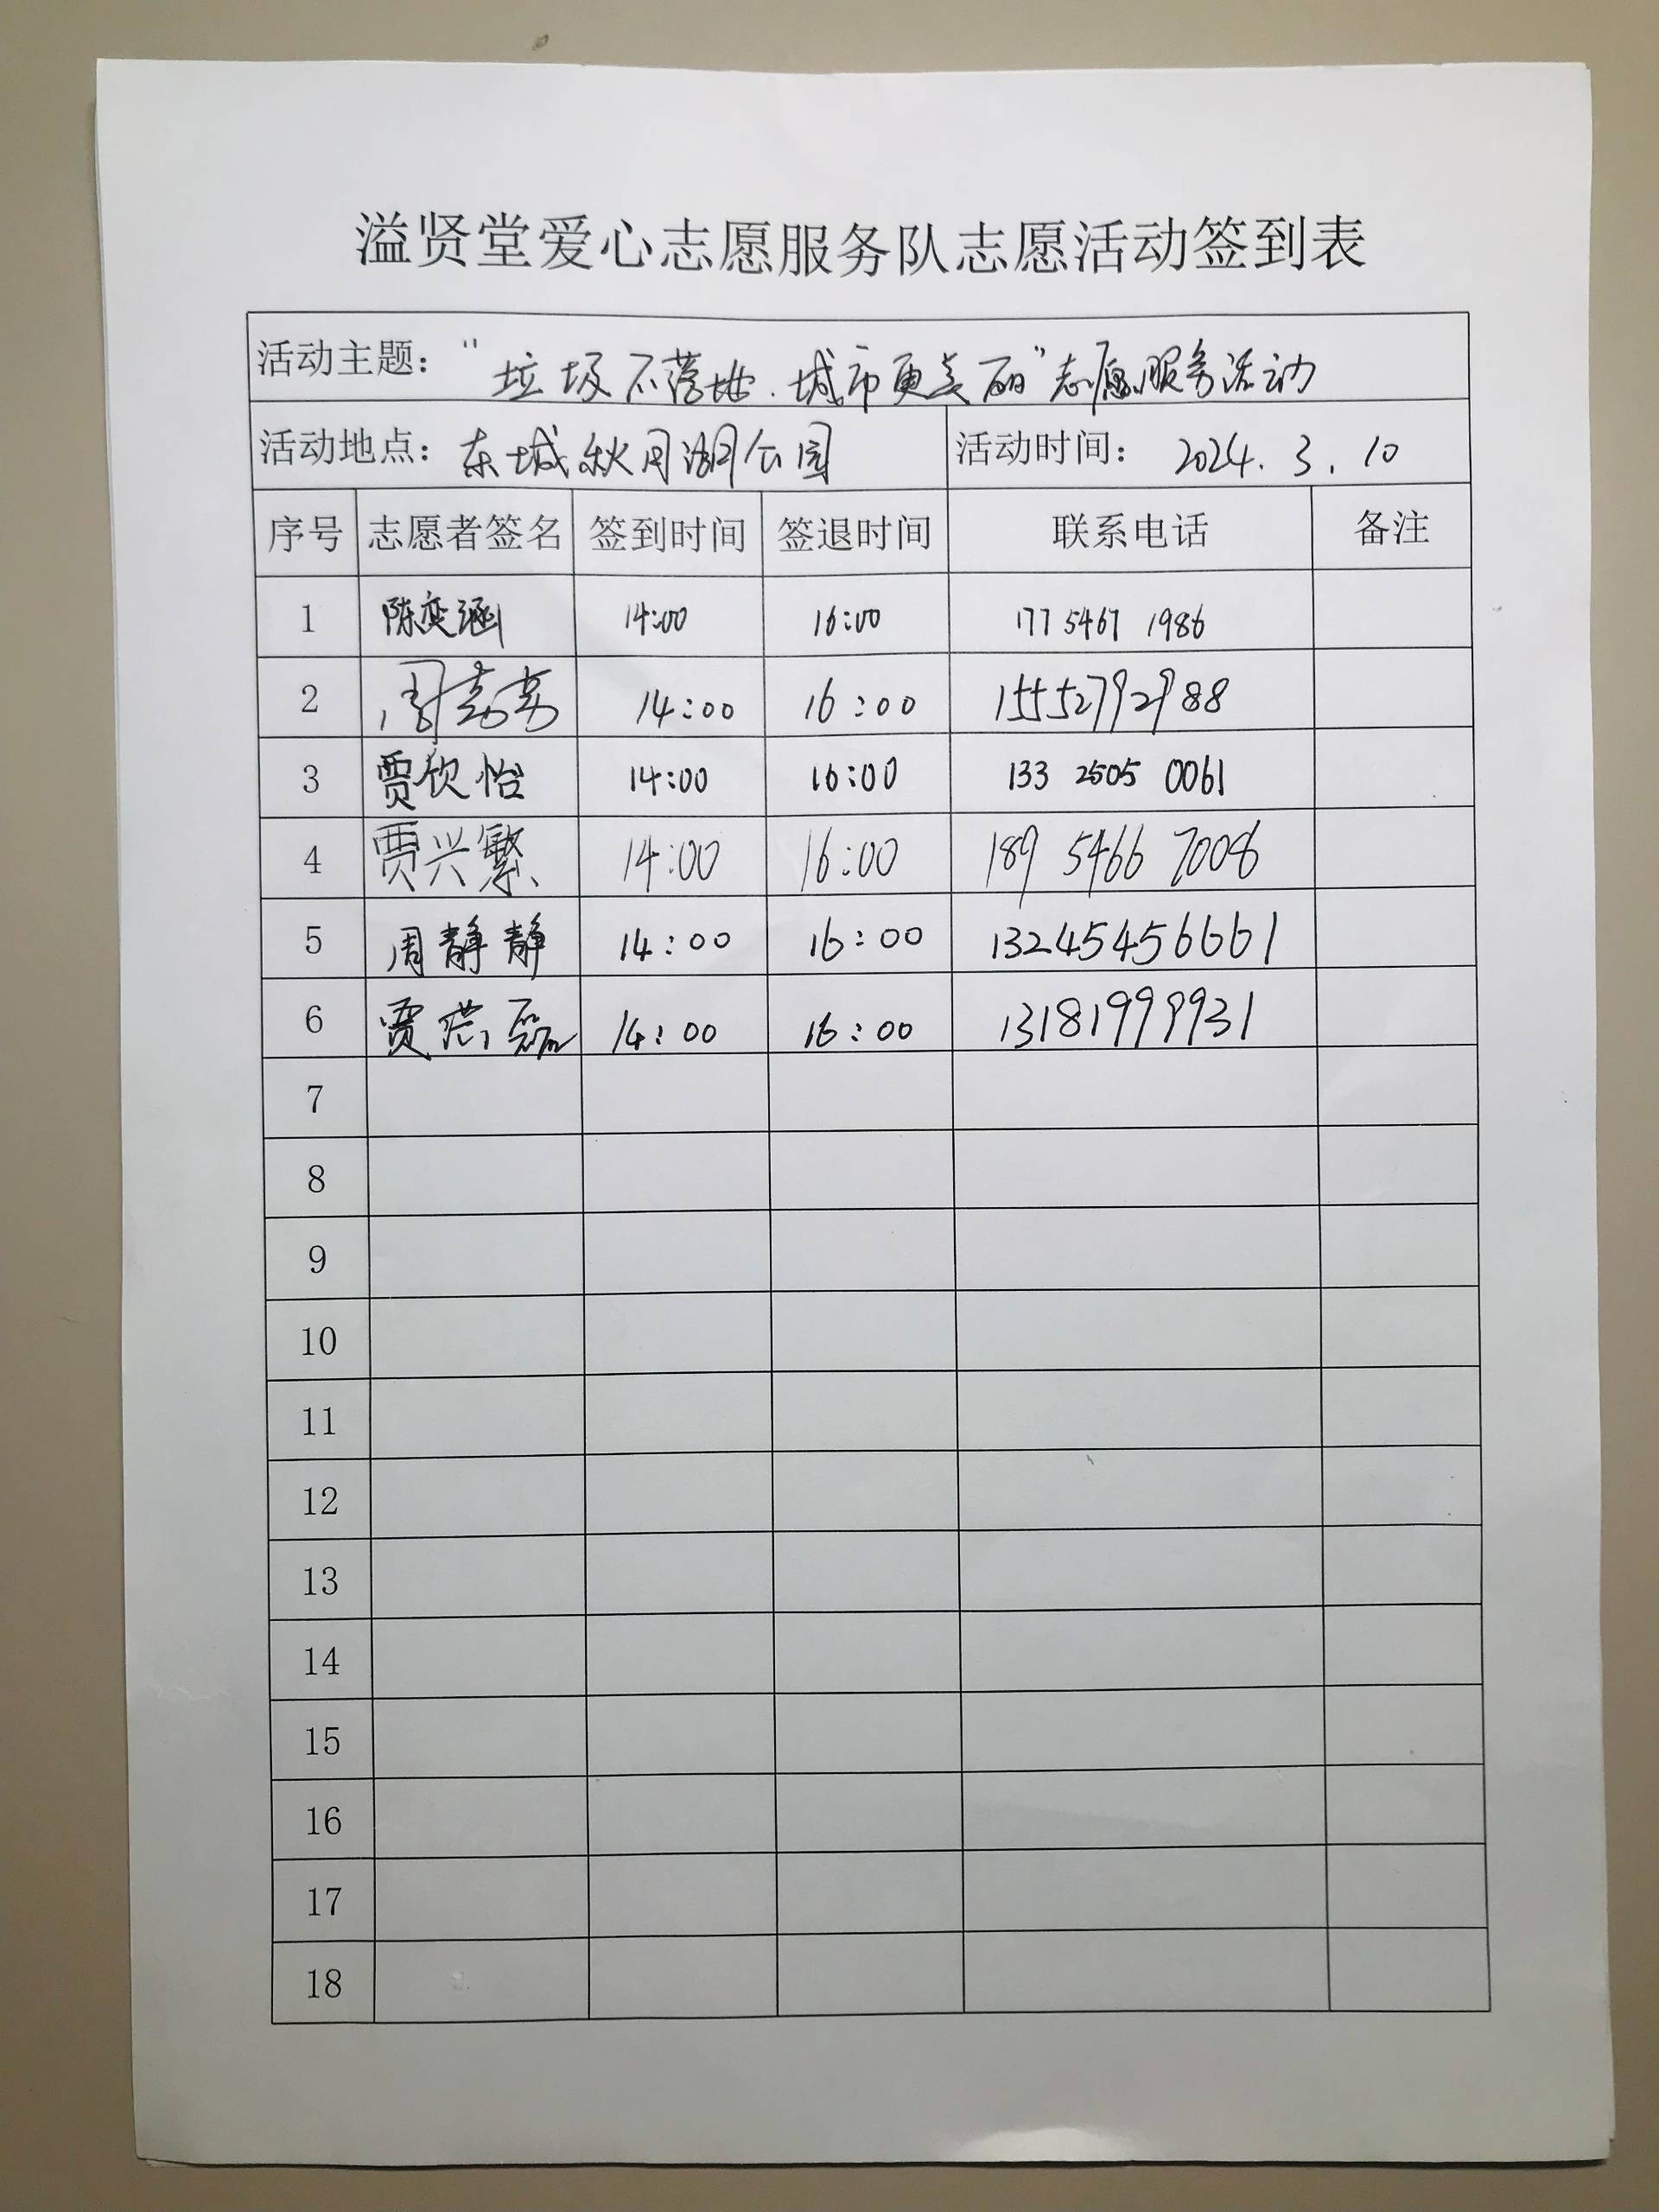 溢贤堂爱心志愿服务队志愿活动签到表
活动主题：“垃圾不落地.城市更美丽”志愿服务活动
活动地点：东城秋月湖公园 活动时间：2024.3.10
序号 志愿者签名 签到时间 签退时间 联系电话 备注
1 陈奕涵 14:00 16:00 177 5467 1986
2 周嘉 14:00 16:00 15552792988
3 贾钦怡 14:00 16:00 133 2505 0061
4 贾兴繁 14:00 16:00 189 5466 7008
5 周静静 14:00 16:00 13245456661
6 贾 磊 14:00 16:00 13181999931
7
8
9
10
11
12
13
14
15
16
17
18